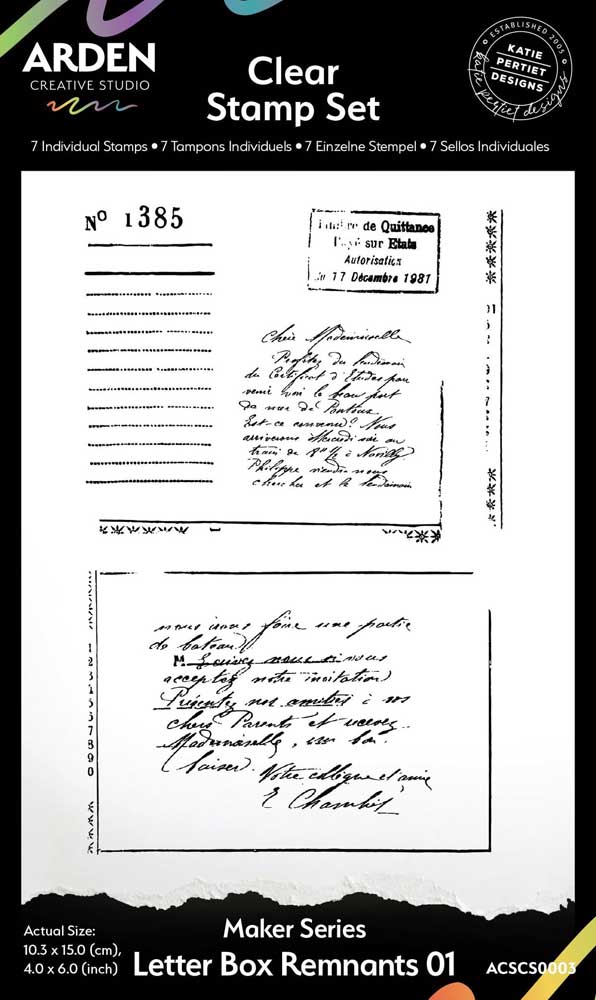 ARDEN
CREATIVE STUDIO
Clear
Stamp Set
ESTABLISHED 2005
KATIE
PERTIET
DESIGNS
katie pertiet designs
7 Individual Stamps • 7 Tampons Individuels • 7 Einzelne Stempel • 7 Sellos Individuales
Nº 1385
de Quittance
sur Etats
Autorisation
17 Décembre 1981
Chère Mademoiselle
Profitez du lendemain
du Certificat d'Etudes pour
venir voir le beau port
de mer de
Est-ce convenu? Nous
arriverons Mercredi soir au
train de à
Philippe viendra nous
chercher et le lendemain
nous irons faire une partie
de bateau
M. nous si nous
acceptez notre invitation
Présentez nos amitiés à vos
chers Parents et recevez
Mademoiselle, un bon
baiser. Votre collègue et amie
E
1
2
3
4
5
5
7
8
9
0
Actual Size:
10.3 x 15.0 (cm),
4.0 x 6.0 (inch)
Maker Series
Letter Box Remnants 01
ACSCS0003